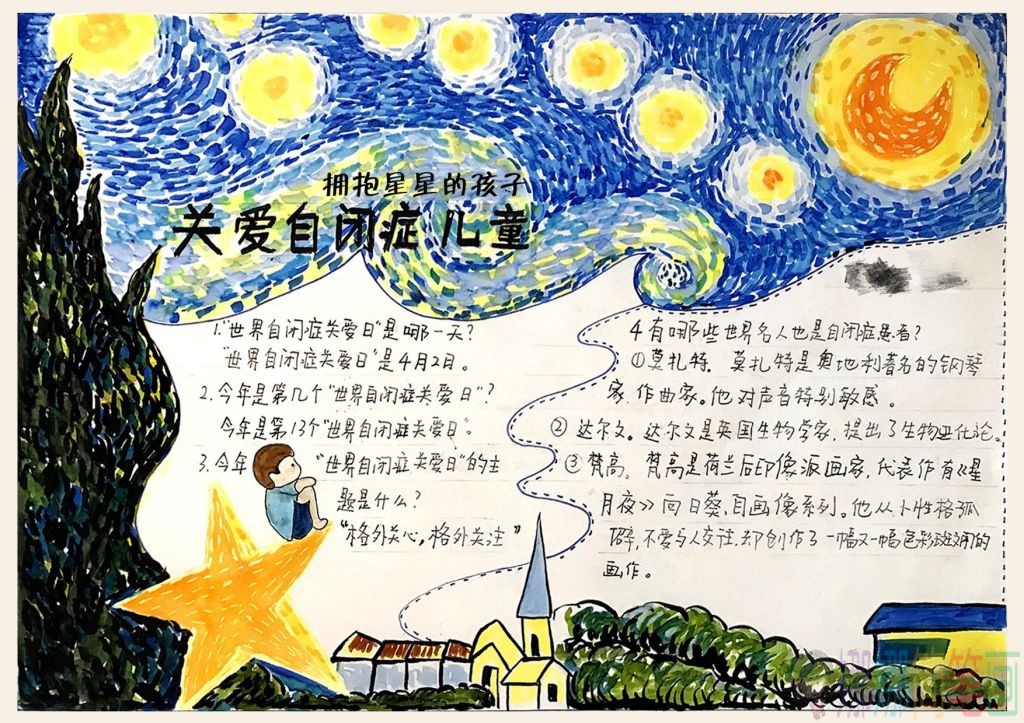 拥抱星星的孩子
关爱自闭症儿童
1."世界自闭症关爱日"是哪一天?
"世界自闭症关爱日"是4月2日。
2.今年是第几个"世界自闭症关爱日"?
今年是第13个"世界自闭症关爱日"。
3.今年"世界自闭症关爱日"的主
题是什么?
"格外关心,格外关注"
4有哪些世界名人也是自闭症患者?
①莫扎特.莫扎特是奥地利著名的钢琴
家、作曲家。他对声音特别敏感。
②达尔文。达尔文是英国生物学家,提出了生物进化论。
③梵高。梵高是荷兰后印象派画家,代表作有《星
月夜》向日葵、自画像系列。他从小性格孤
僻,不爱与人交往.却创作了一幅又一幅色彩斑斓的
画作。